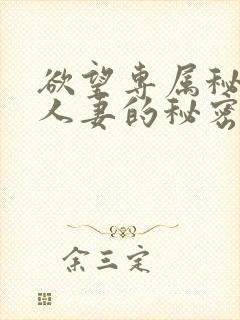 欲望专属秘
人妻的秘密
余三定